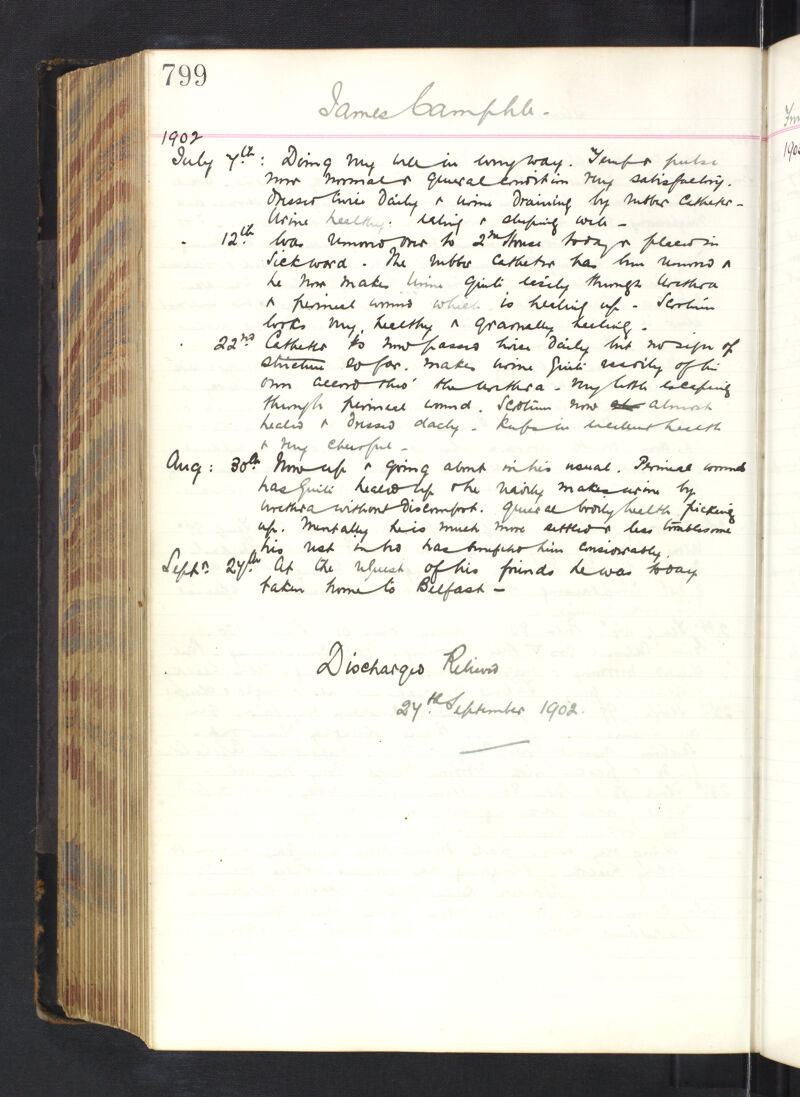 799
James Camphle -
1902
July 7th: Doing very well in every way. Temp & pulse
now normal & general condition very satisfactory.
Dressed twice daily & urine draining by rubber catheter -
Urine healthy. eating & sleeping well -
. 12th Was removed over to 2nd House today & placed in
Sick ward. The rubber catheter has been removed &
he now makes urine quite easily through urethra
& perineal wound which is healing up - Scrotum
looks very healthy & gradually healing -
. 22nd Catheter is now passed twice daily but no sign of
stricture so far. Makes urine quite readily of his
own accord thro' the urethra - Very little escaping
through perineal wound. Scrotum now almost
healed & dressed daily - Keeps in excellent health
& very cheerful -
Aug: 30th Now up & going about in his usual. Perineal wound
has quite healed up & he readily makes urine by
urethra without discomfort. General bodily health picking
up. Mentally he is much more settled & less troublesome
his rest in bed has benefited him considerably.
Septr. 27th At the request of his friends he was today
taken home to Belfast -
Discharged Relieved
27th September 1902.
1902